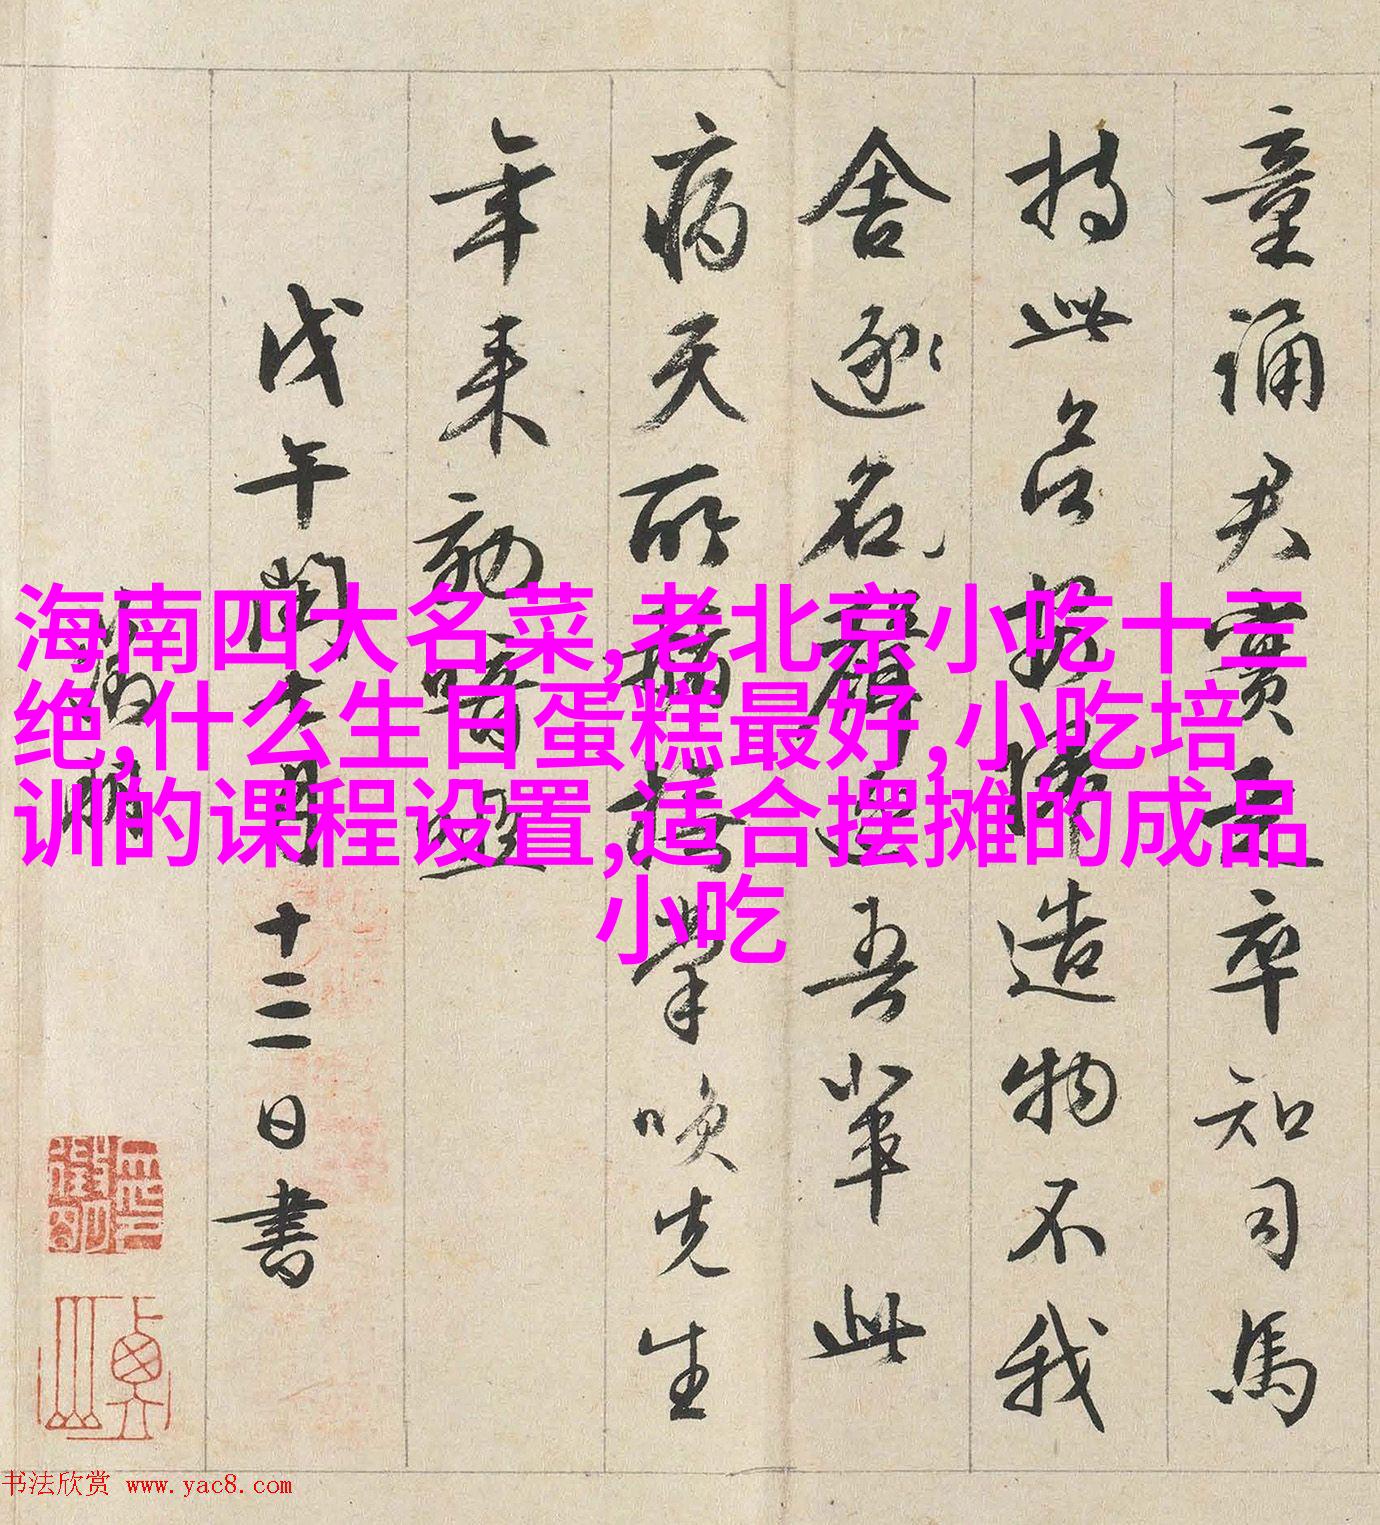 童誦君實走卒知司馬
持此歸造物不我
舍逐名聲吾輩此
病天所掌咲先生
年來効瘖
戊午閏十月十二日書
海南四大名菜,老北京小吃十三
绝,什么生日蛋糕最好,小吃培
训的课程设置,适合摆摊的成品
小吃
书法欣赏 www.yac8.com